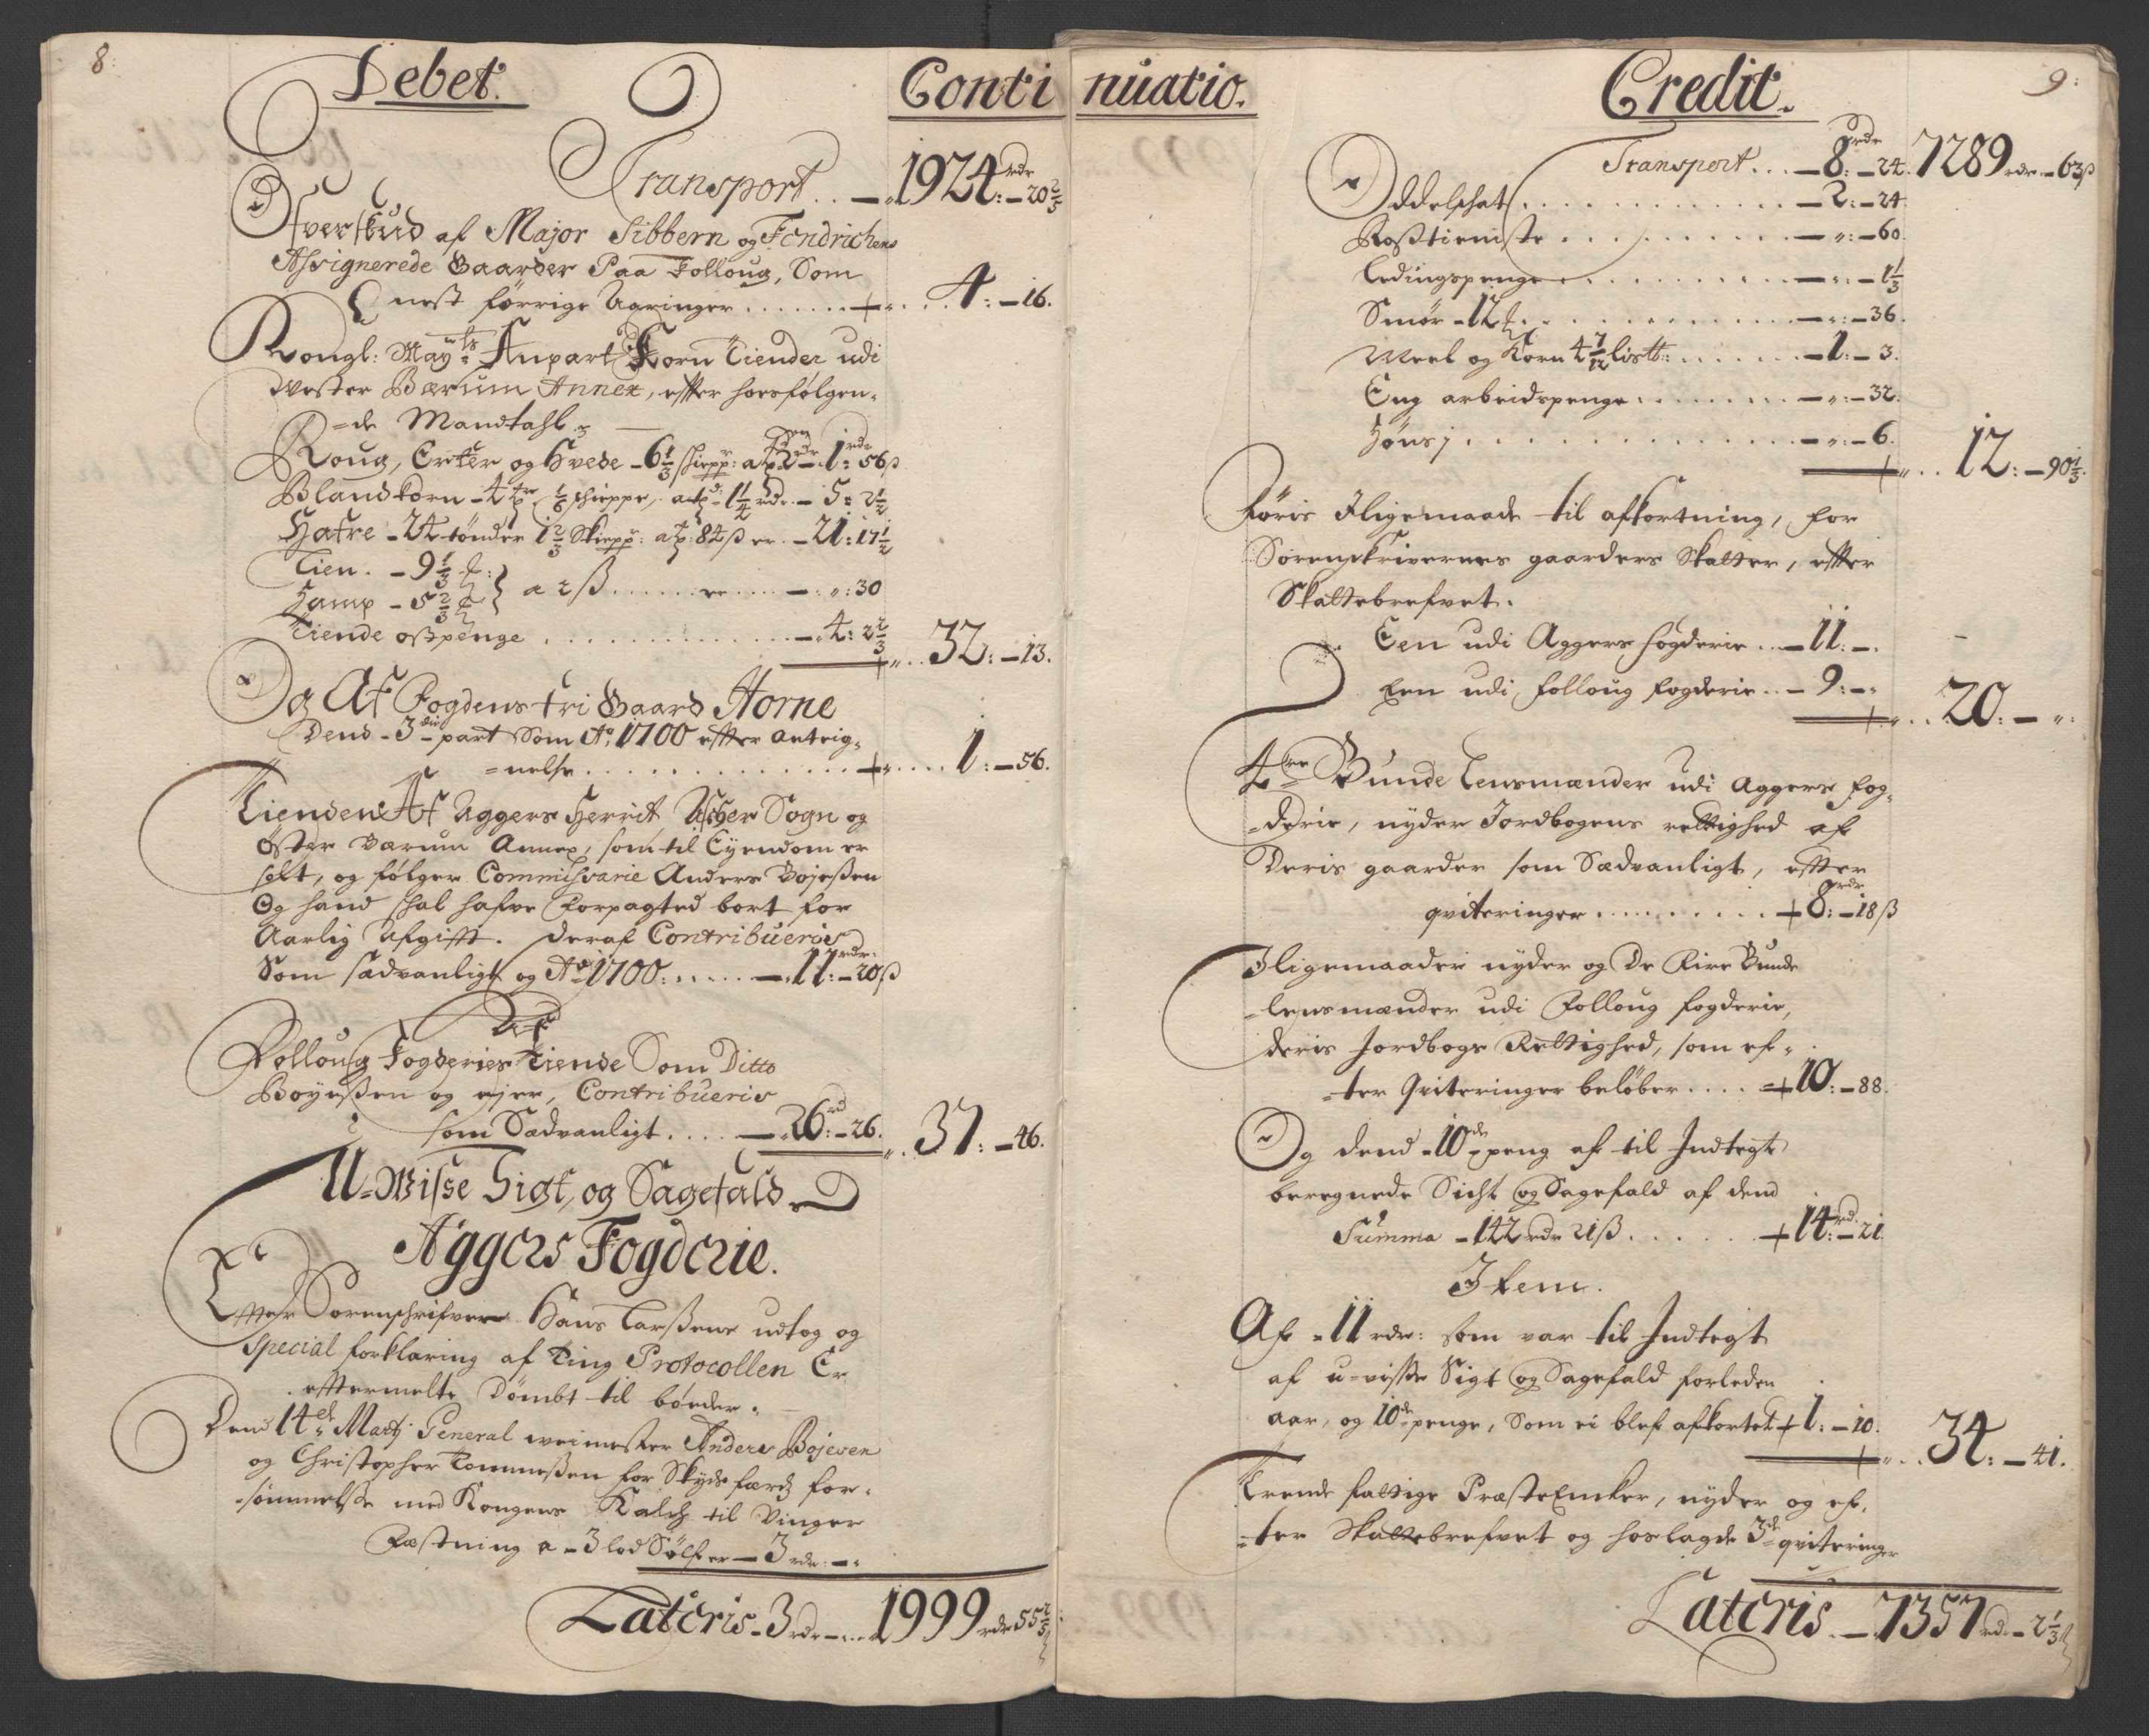 8:
Debet.
Conti
Transport . . — 1924 rdr: – 20 2/5
Ofverskud af Major Sibbern og Fendrichens
Assignerede Gaarder Paa Folloug, Som
nest forrige Aaringer . . . . . . 4: – 16.
Kongl: Mayts Anpart Korn Tiender udi
Wester Bærum Annex, effter hoesfølgen-
=de Mandtahl
Roug, Erter og Hvede – 6 1/3 skiepp: a tp 2 rdr – 1 rdr 56 ß
Blandkorn – 4 tr 1/6 schieppe, a tp 1 1/4 rdr. – 5: 2 1/2
Hafre – 24 tønder 1 2/3 Skiepp: a tp: 84 ß er. – 21: 17 1/2
Lien. – 9 1/3 ℔:
Hamp – 5 2/3 ℔ } a 2 ß . . . . . . er . . . . — : „: 30
Tiende ostpenge . . . . . . . . . — 4: 2 2/3
32: – 13.
Og Af Fogdens fri Gaard Horne
Dend – 3die part Som Ao 1700 effter anteig-
=nelse . . . . . . . . . . . 1: – 56.
Tienden Af Aggers Herrit, Asker Sogn og
Øster Bærum Annex, som til Eyendom er
solt, og følger Commissarie Anders Bojessen
Og hand schal hafve Forpagted bort for
Aarlig Afgifft. Deraf Contribueris
Som sædvanligt og Ao 1700: . . . . . — 11 rdr: – 20 ß
Af
Folloug Fogderies Tiende Som Ditto
Boyessen og ejer, Contribueris
som Sædvanligt . . . . — 26 rd – 26.
37: – 46.
U-Wisse Sigt, og Sagefald
Aggers Fogderie.
Effter Sorenschrifver Hans Larssens udtog og
Special forklaring af Ting Protocollen Er
efftermelte Dømbt til bøeder.
Dend 14de Martj General weimester Anders Bojesen
og Christopher Tommessen for Skydsfærds for-
-sømmelsse med Kongens Kalch til Vinger
Fæstning a – 3 lod Sølf er – 3 rdr: – „
Lateris – 3 rdr – . . . 1999 rdr 55 2/5 ß
9:
nuatio.
Credit.
Transport . . . — 8 rdr: – 24. 7289 rdr. – 63 ß
Oddelschat . . . . . . . . . . . — 2: – 24.
Rosstieniste . . . . . . . . . — „: – 60.
Ledingspenge . . . . . . . . . — „: – 1 1/3
Smør – 12 ℔ . . . . . . . . . — „: – 36.
Meel og Korn 4 7/12 lis℔: . . . . . . — 1: – 3.
Eng arbeidspenge . . . . . . . — „: – 32.
Høns j . . . . . . . . . . . . — „: – 6.
12: – 90 1/3.
Føris Iligemaade til afkortning, for
Sorenskrivernes gaarders Skatter, effter
Skattebrefvet.
Een udi Aggers fogderie . . — 11: – .
Een udi Folloug fogderie . . – 9: – „
20: – „:
4re Bunde Lensmænder udi Aggers fog-
-derie, nyder Jordbogens rettighed af
Deris gaarder som Sædvanligt, effter
qviteringer . . . . . . . . . 8 rdr: – 18 ß
Iligemaader nyder og De Fire Bunde
-lensmænder udi Folloug fogderie,
deris Jordbogs Rettighed, som ef-
-ter Qviteringer beløber . . . . 10: – 88.
Og dend – 10de peng af til Indtegt
beregnede Sicht og Sagefald af dend
Summa – 142 rdr 21 ß . . . . . . 14 rd. – 21
Item.
Af – 11 rdr: som var til Indtegt
af u-visse Sigt og Sagefald forleden
aar, og 10de penge, Som ei blef afkortet 1: – 10.
34: – 41.
Trende fattige Præste Encker, nyder og ef-
-ter Skattebrefvet og hoslagde 3de qviteringer
Lateris . — 7357 rd. – 2 1/3 ß